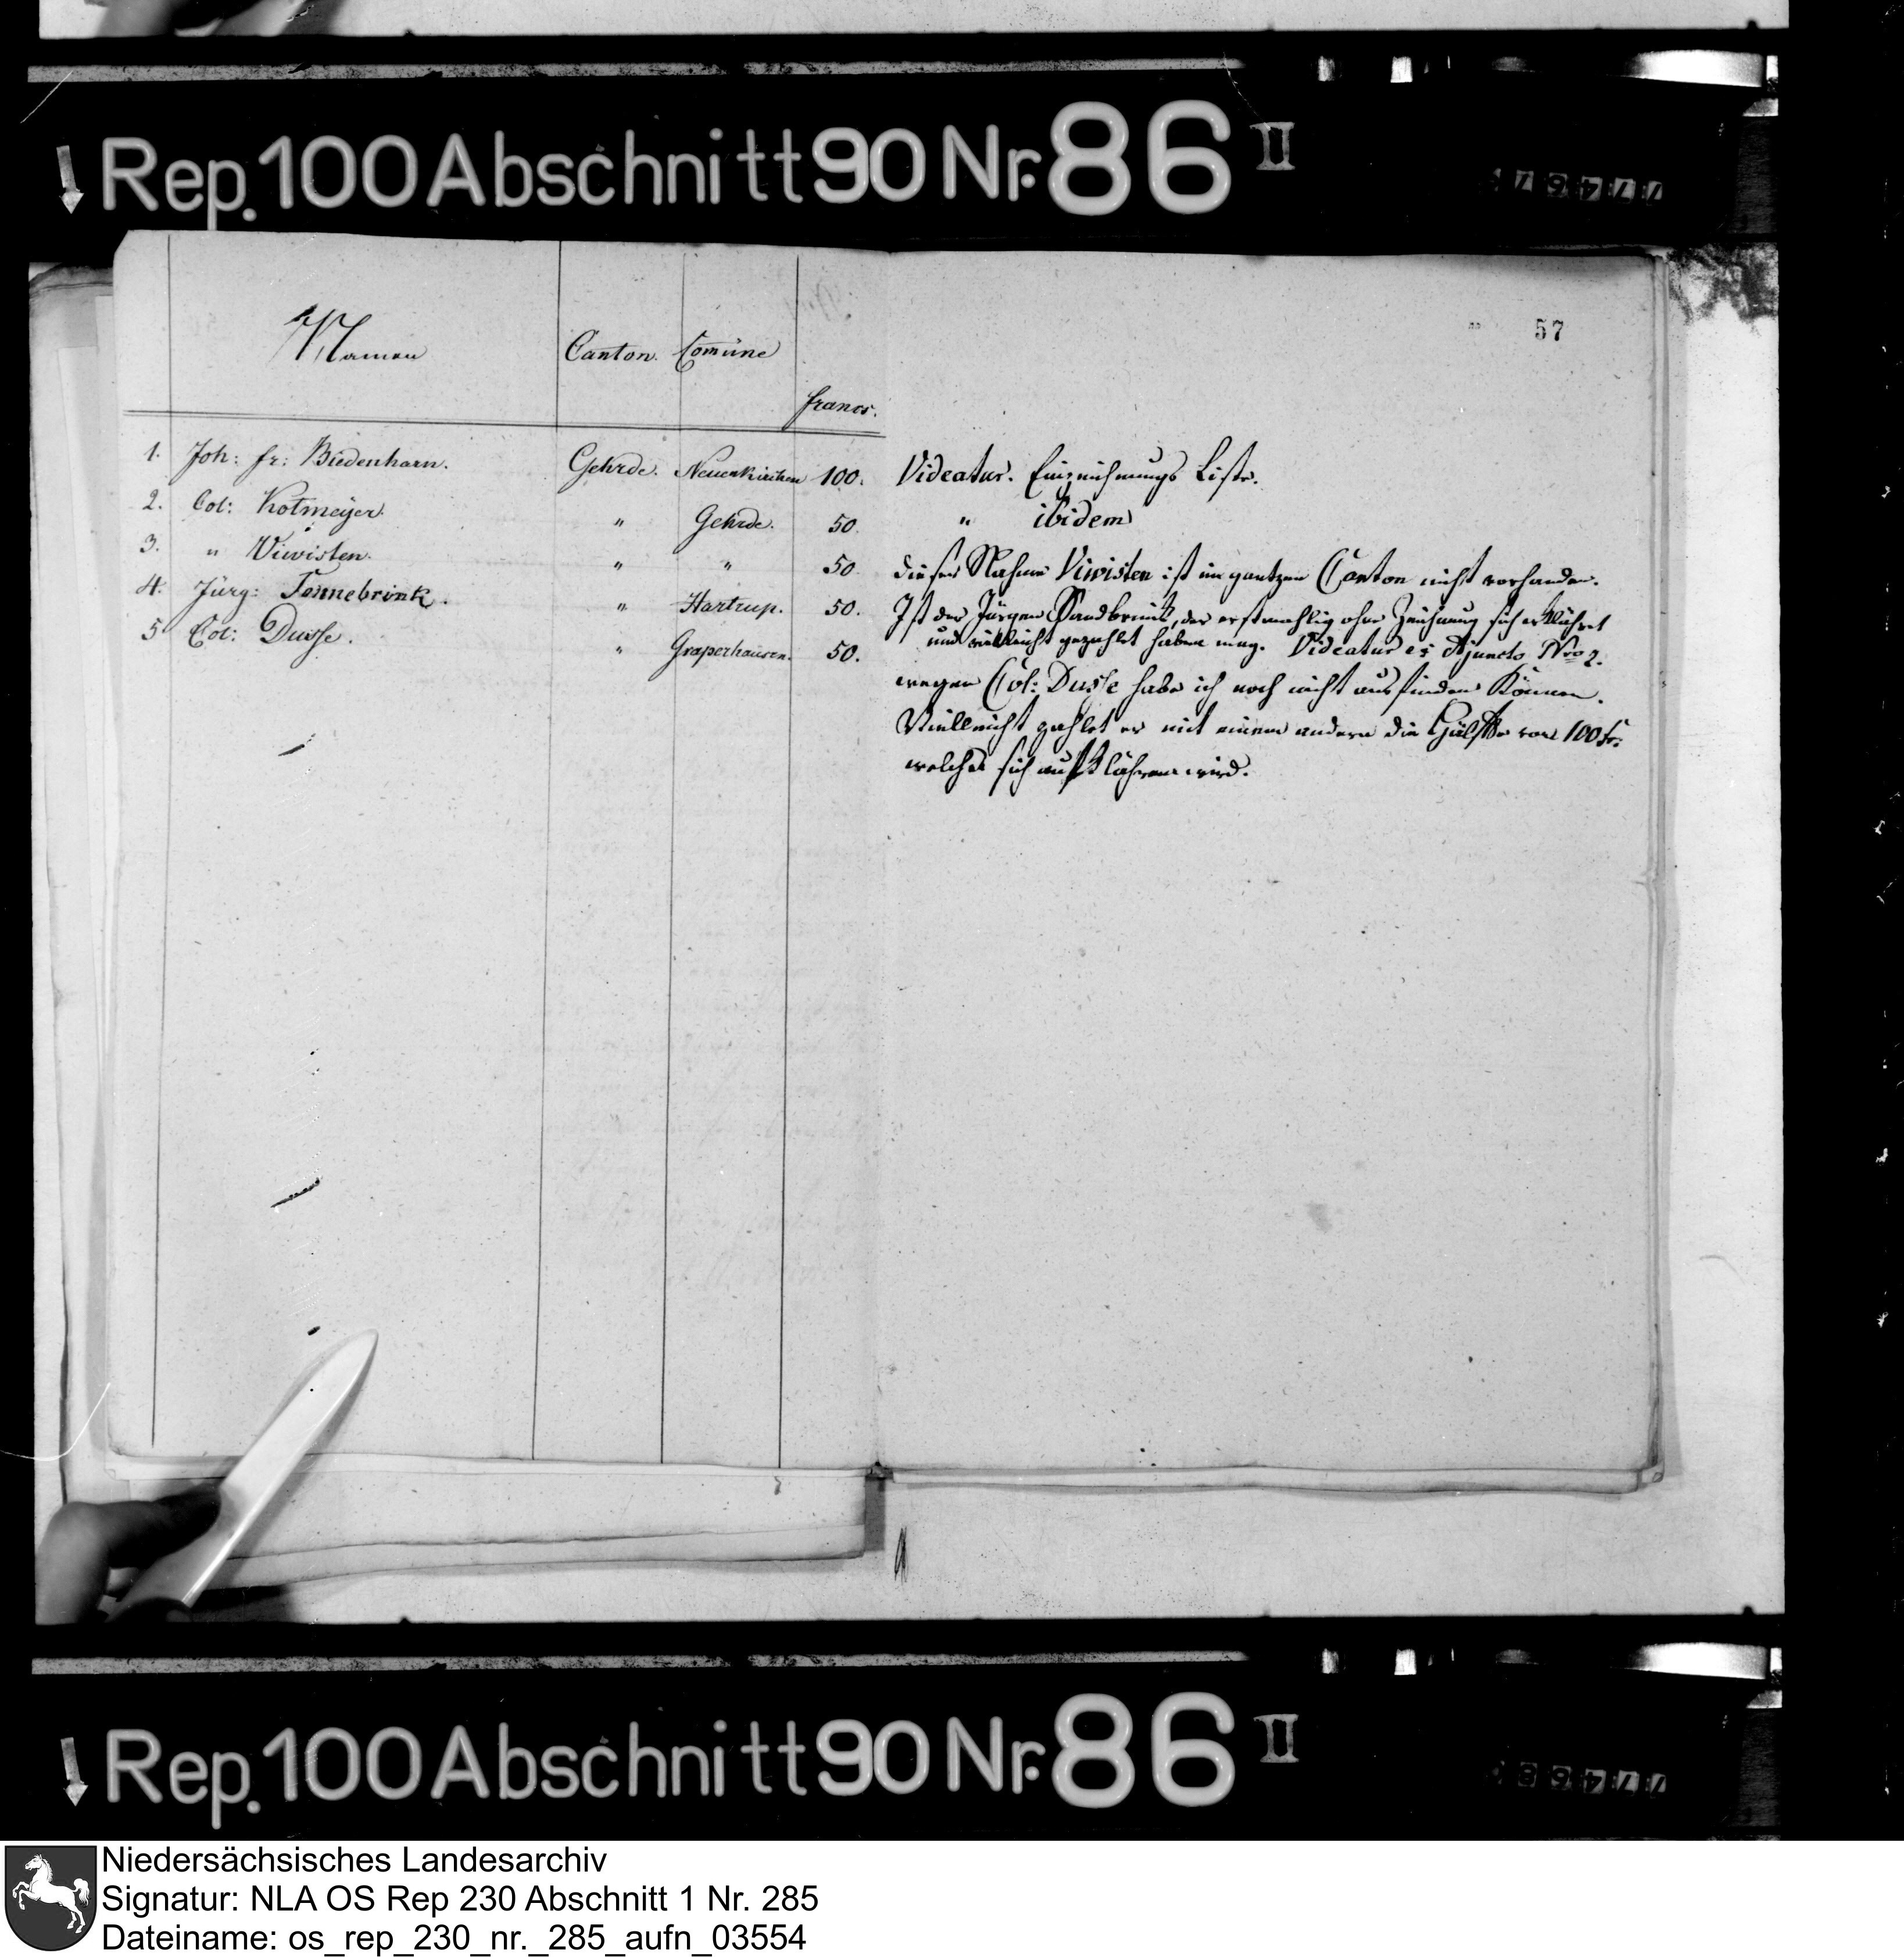 Rep. 100 Abschnitt 90 Nr. 86 II
57
Namen Canton. Comüne francs.
1. Joh: fr: Biedenharn. Gehrde. Neuenkirchen 100. Videatur. Einzeichnungs Liste.
2. Col: Kotmeyer. " Gehrde. 50. " ibidem
3. " Viwisten. " " 50 dieser Nahme Viwisten ist im gantzen Canton nicht vorhanden.
4. Jürg: Tonnebrink. " Hartrup. 50. Ist der Jürgen Sandbrink, der erstmahlig ohne Zeichnung sich erklähret
und vielleicht gezahlt haben mag. Videatur es Adjuncto Nro 2.
5 Col: Dusse. " Graperhausen. 50. wegen Col: Dusse habe ich noch nicht ausfinden Können.
Vielleicht zahlet er mit einem andern die Hälfte von 100 fr:
welches sich aufklähren wird.
Rep. 100 Abschnitt 90 Nr. 86 II
Niedersächsisches Landesarchiv
Signatur: NLA OS Rep 230 Abschnitt 1 Nr. 285
Dateiname: os_rep_230_nr._285_aufn_03554